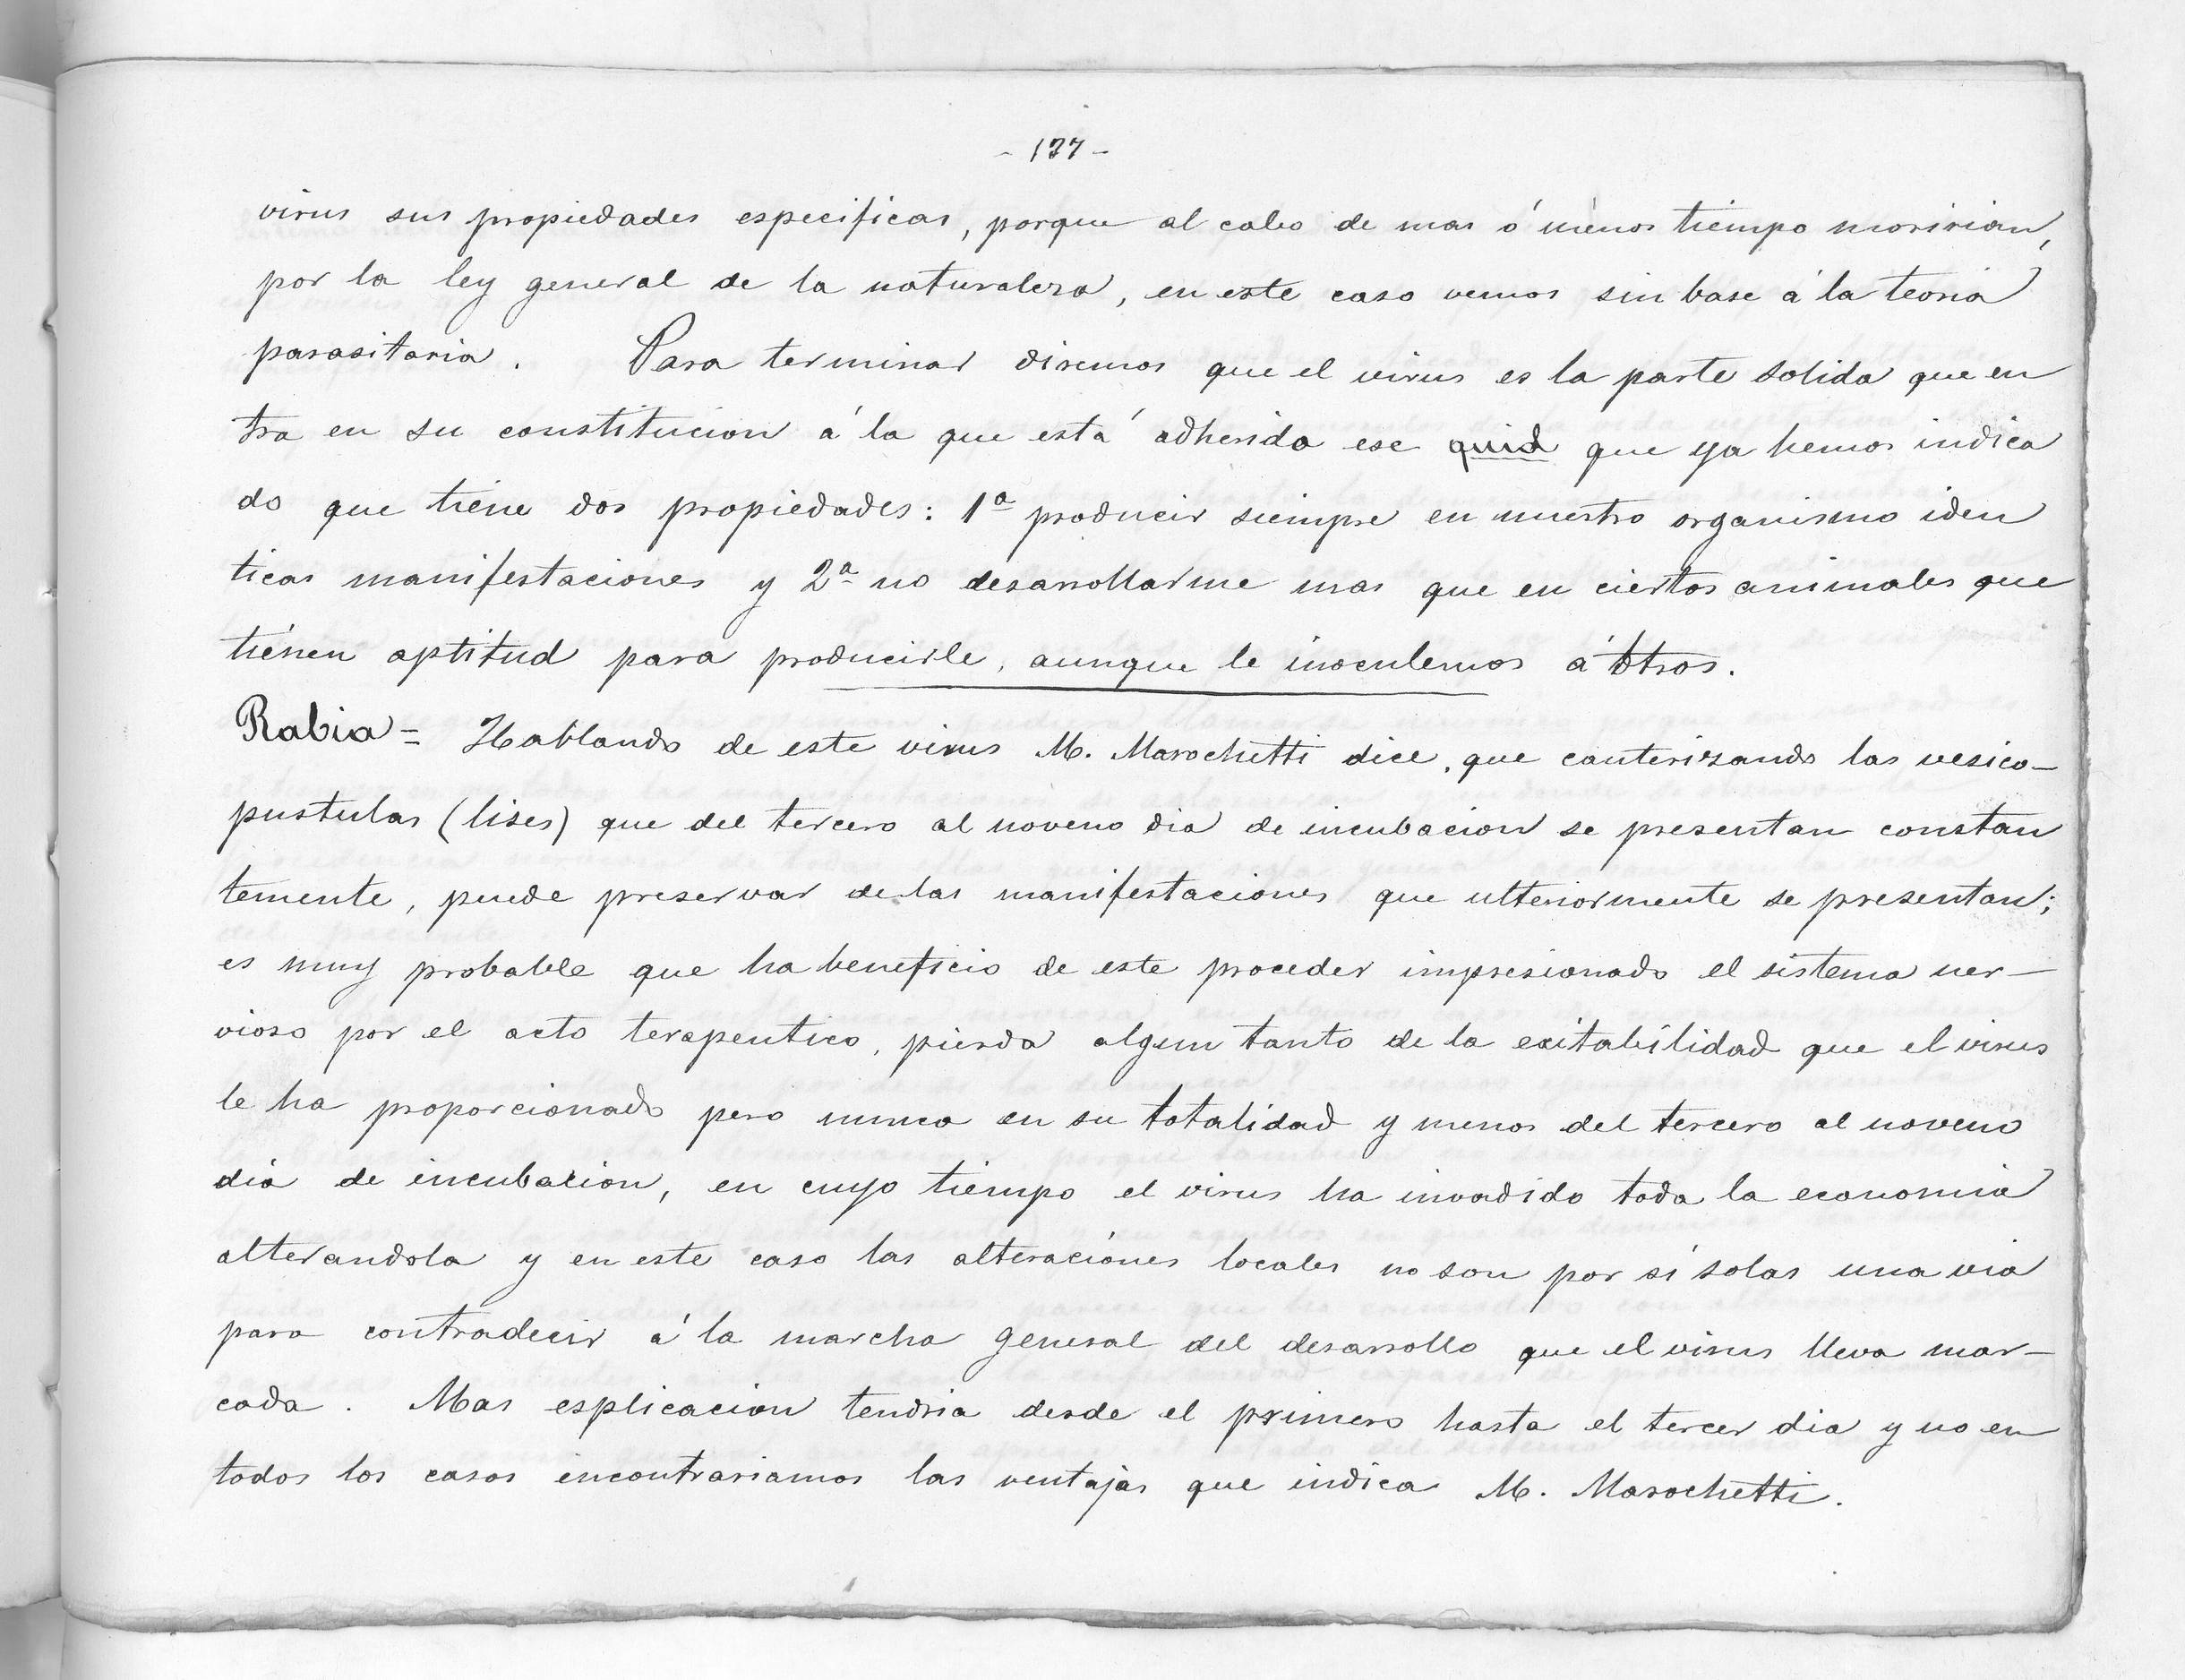 - 177 -
virus sus propiedades especificas, porque al cabo de mas ó ménos tiempo moririan,
por la ley general de la naturaleza, en este caso vemos sin base á la teoria
parasitaria. Para terminar diremos que el virus es la parte solida que en
tra en su constitucion á la que está adherida ese quid que ya hemos indica
do que tiene dos propiedades: 1ª producir siempre en nuestro organismo iden
ticas manifestaciones y 2ª no desarrollarme mas que en ciertos animales que
tiénen aptitud para producirle, aunque le inoculemos á otros.
Rabia = Hablando de este virus M. Marochetti dice, que cauterizando las vesico-
pustulas (lises) que del tercero al noveno dia de incubacion se presentan constan
temente, puede preservar de las manifestaciones que ulteriormente se presentan;
es muy probable que ha beneficio de este proceder impresionado el sistema ner-
vioso por el acto terapeutico, pierda algun tanto de la exitabilidad que el virus
le ha proporcionado pero nunca en su totalidad y menos del tercero al noveno
dia de incubacion, en cuyo tiempo el virus ha invadido toda la economia
alterandola y en este caso las alteraciones locales no son por sí solas una via
para contradecir á la marcha general del desarrollo que el virus lleva mar-
cada. Mas esplicacion tendria desde el primero hasta el tercer dia y no en
todos los casos encontrariamos las ventajas que indica M. Marochetti.